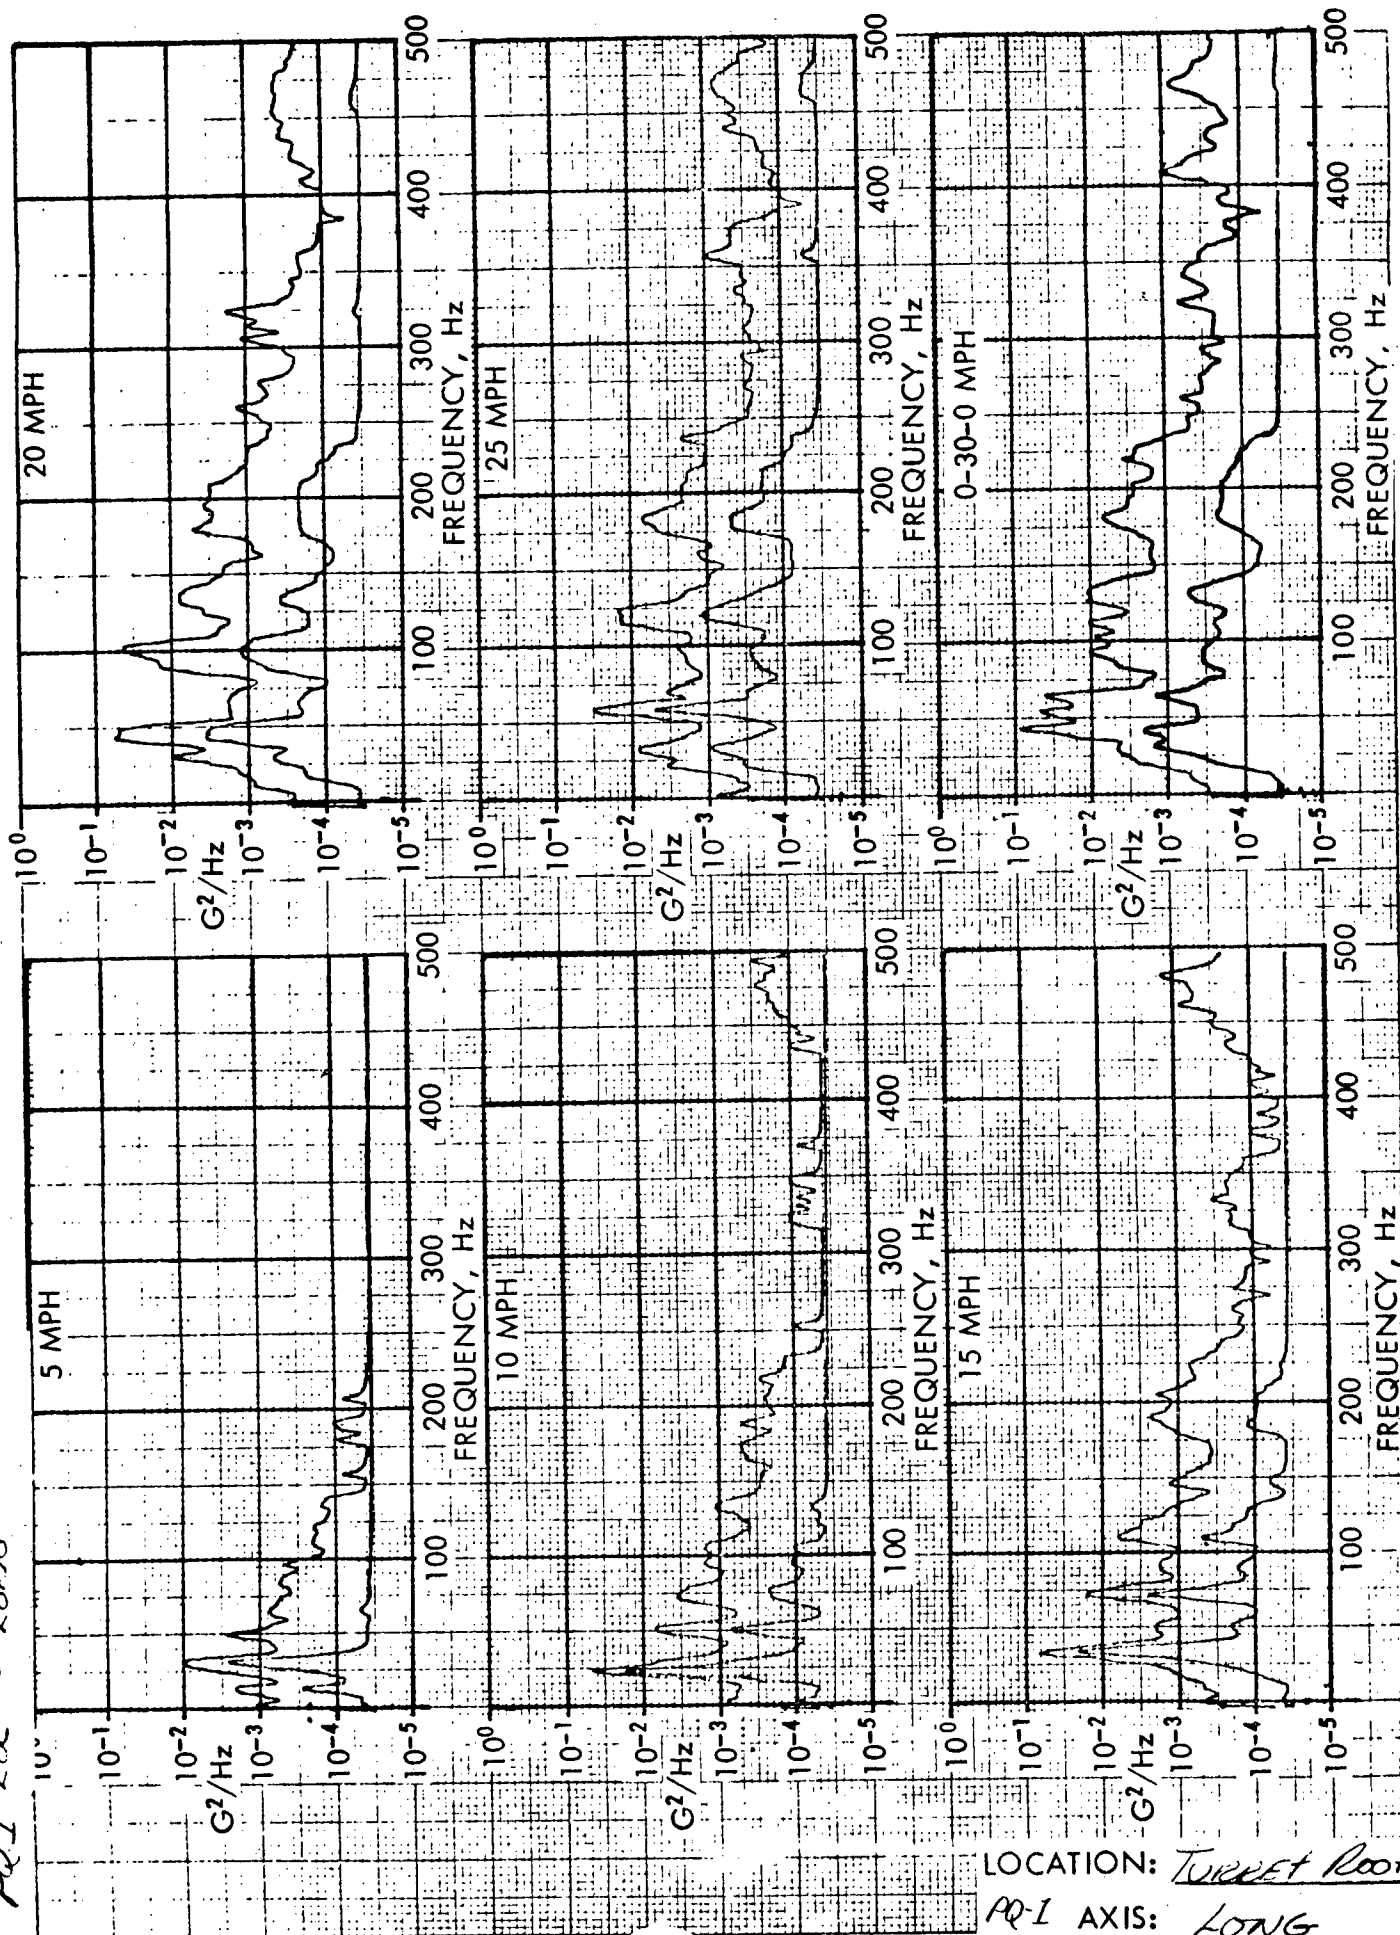 5 MPH
G²/Hz
10⁻¹
10⁻²
10⁻³
10⁻⁴
10⁻⁵
100
200
300
400
500
FREQUENCY, Hz
20 MPH
G²/Hz
10⁰
10⁻¹
10⁻²
10⁻³
10⁻⁴
10⁻⁵
100
200
300
400
500
FREQUENCY, Hz
10 MPH
G²/Hz
10⁰
10⁻¹
10⁻²
10⁻³
10⁻⁴
10⁻⁵
100
200
300
400
500
FREQUENCY, Hz
25 MPH
G²/Hz
10⁰
10⁻¹
10⁻²
10⁻³
10⁻⁴
10⁻⁵
100
200
300
400
500
FREQUENCY, Hz
15 MPH
G²/Hz
10⁰
10⁻¹
10⁻²
10⁻³
10⁻⁴
10⁻⁵
100
200
300
400
500
FREQUENCY, Hz
0-30-0 MPH
G²/Hz
10⁰
10⁻¹
10⁻²
10⁻³
10⁻⁴
10⁻⁵
100
200
300
400
500
FREQUENCY, Hz
LOCATION: TURRET
PQ-1 AXIS: LONG